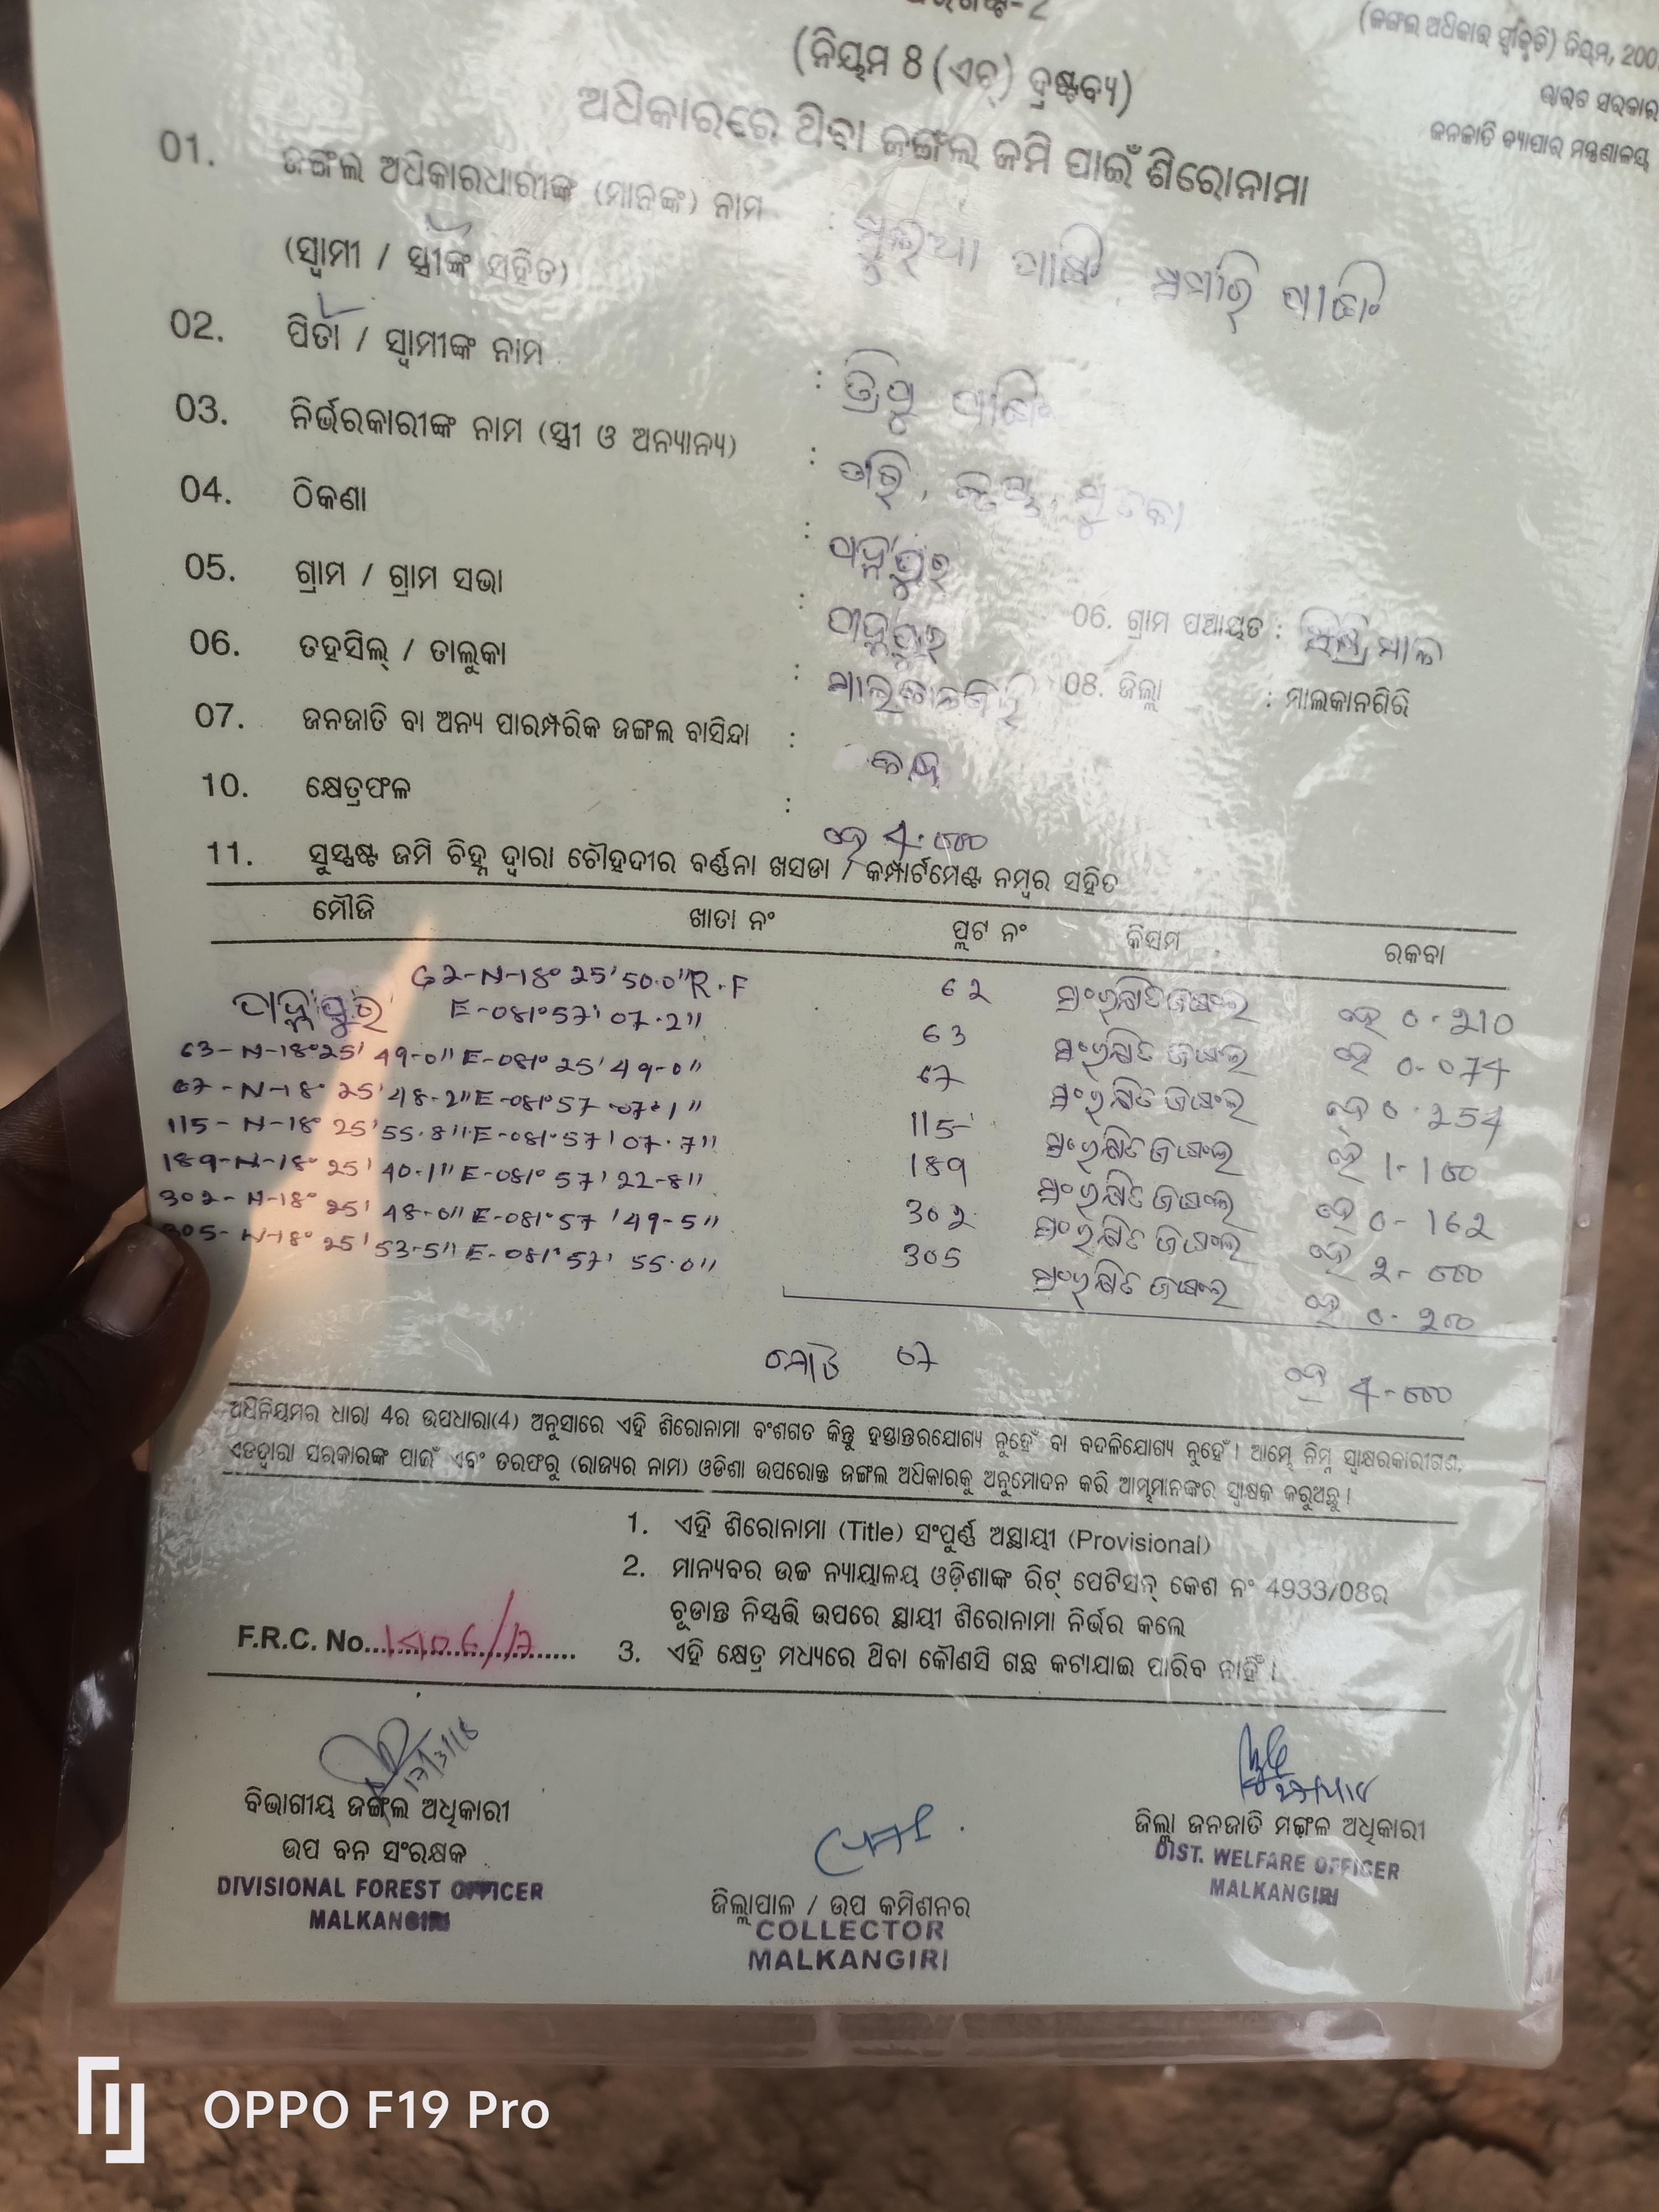 (ଜଙ୍ଗଲ ଅଧିକାର ସ୍ୱୀକୃତି) ନିୟମ, 200
ଭାରତ ସରକାର
ଜନଜାତି ବ୍ୟାପାର ମନ୍ତ୍ରଣାଳୟ
(ନିୟମ 8 (ଏଚ୍) ଦ୍ରଷ୍ଟବ୍ୟ)
ଅଧିକାରରେ ଥିବା ଜଙ୍ଗଲ ଜମି ପାଇଁ ଶିରୋନାମା
01. ଜଙ୍ଗଲ ଅଧିକାରଧାରୀଙ୍କ (ମାନଙ୍କ) ନାମ
(ସ୍ୱାମୀ / ସ୍ତ୍ରୀଙ୍କ ସହିତ)
02. ପିତା / ସ୍ୱାମୀଙ୍କ ନାମ :
03. ନିର୍ଭରକାରୀଙ୍କ ନାମ (ସ୍ତ୍ରୀ ଓ ଅନ୍ୟାନ୍ୟ) :
04. ଠିକଣା :
05. ଗ୍ରାମ / ଗ୍ରାମ ସଭା : 06. ଗ୍ରାମ ପଞ୍ଚାୟତ :
06. ତହସିଲ୍ / ତାଲୁକା : ମାଲକାନଗିରି 08. ଜିଲ୍ଲା : ମାଲକାନଗିରି
07. ଜନଜାତି ବା ଅନ୍ୟ ପାରମ୍ପରିକ ଜଙ୍ଗଲ ବାସିନ୍ଦା :
10. କ୍ଷେତ୍ରଫଳ : ହେ 4.000
11. ସୁସ୍ପଷ୍ଟ ଜମି ଚିହ୍ନ ଦ୍ୱାରା ଚୌହଦୀର ବର୍ଣ୍ଣନା ଖସଡା / କମ୍ପାର୍ଟମେଣ୍ଟ ନମ୍ବର ସହିତ
ମୌଜି ଖାତା ନଂ ପ୍ଲଟ ନଂ କିସମ ରକବା
62-N-18° 25' 50.0" R.F 62 ସଂରକ୍ଷିତ ଜଙ୍ଗଲ ହେ 0-210
E-081°57' 07.2"
63-N-18°25' 49-0" E-081° 25' 49-0" 63 ସଂରକ୍ଷିତ ଜଙ୍ଗଲ ହେ 0-074
67-N-18° 25' 48-2" E-081°57 -07.1" 67 ସଂରକ୍ଷିତ ଜଙ୍ଗଲ ହେ 0.254
115-N-18° 25' 55.8" E-081°57' 07.7" 115 ସଂରକ୍ଷିତ ଜଙ୍ଗଲ ହେ 1-100
189-N-18° 25' 40.1" E-081° 57' 22-8" 189 ସଂରକ୍ଷିତ ଜଙ୍ଗଲ ହେ 0-162
302-N-18° 25' 48-0" E-081°57 '49-5" 302 ସଂରକ୍ଷିତ ଜଙ୍ଗଲ ହେ 2-000
305-N-18° 25' 53-5" E-081°57' 55.0" 305 ସଂରକ୍ଷିତ ଜଙ୍ଗଲ ହେ 0-200
ମୋଟ 07 ହେ 4-000
ଅଧିନିୟମର ଧାରା 4ର ଉପଧାରା(4) ଅନୁସାରେ ଏହି ଶିରୋନାମା ବଂଶଗତ କିନ୍ତୁ ହସ୍ତାନ୍ତରଯୋଗ୍ୟ ନୁହେଁ ବା ବଦଳିଯୋଗ୍ୟ ନୁହେଁ। ଆମ୍ଭେ ନିମ୍ନ ସ୍ୱାକ୍ଷରକାରୀଗଣ,
ଏତଦ୍ୱାରା ସରକାରଙ୍କ ପାଇଁ ଏବଂ ତରଫରୁ (ରାଜ୍ୟର ନାମ) ଓଡିଶା ଉପରୋକ୍ତ ଜଙ୍ଗଲ ଅଧିକାରକୁ ଅନୁମୋଦନ କରି ଆମ୍ଭମାନଙ୍କର ସ୍ୱାକ୍ଷର କରୁଅଛୁ।
1. ଏହି ଶିରୋନାମା (Title) ସଂପୂର୍ଣ୍ଣ ଅସ୍ଥାୟୀ (Provisional)
2. ମାନ୍ୟବର ଉଚ୍ଚ ନ୍ୟାୟାଳୟ ଓଡ଼ିଶାଙ୍କ ରିଟ୍ ପେଟିସନ୍ କେଶ ନଂ 4933/08ର
ଚୂଡାନ୍ତ ନିସ୍ପତ୍ତି ଉପରେ ସ୍ଥାୟୀ ଶିରୋନାମା ନିର୍ଭର କଲେ
F.R.C. No.
3. ଏହି କ୍ଷେତ୍ର ମଧ୍ୟରେ ଥିବା କୌଣସି ଗଛ କଟାଯାଇ ପାରିବ ନାହିଁ।
ବିଭାଗୀୟ ଜଙ୍ଗଲ ଅଧିକାରୀ
ଉପ ବନ ସଂରକ୍ଷକ
DIVISIONAL FOREST OFFICER
MALKANGIRI
ଜିଲ୍ଲାପାଳ / ଉପ କମିଶନର
COLLECTOR
MALKANGIRI
ଜିଲ୍ଲା ଜନଜାତି ମଙ୍ଗଳ ଅଧିକାରୀ
DIST. WELFARE OFFICER
MALKANGIRI
OPPO F19 Pro